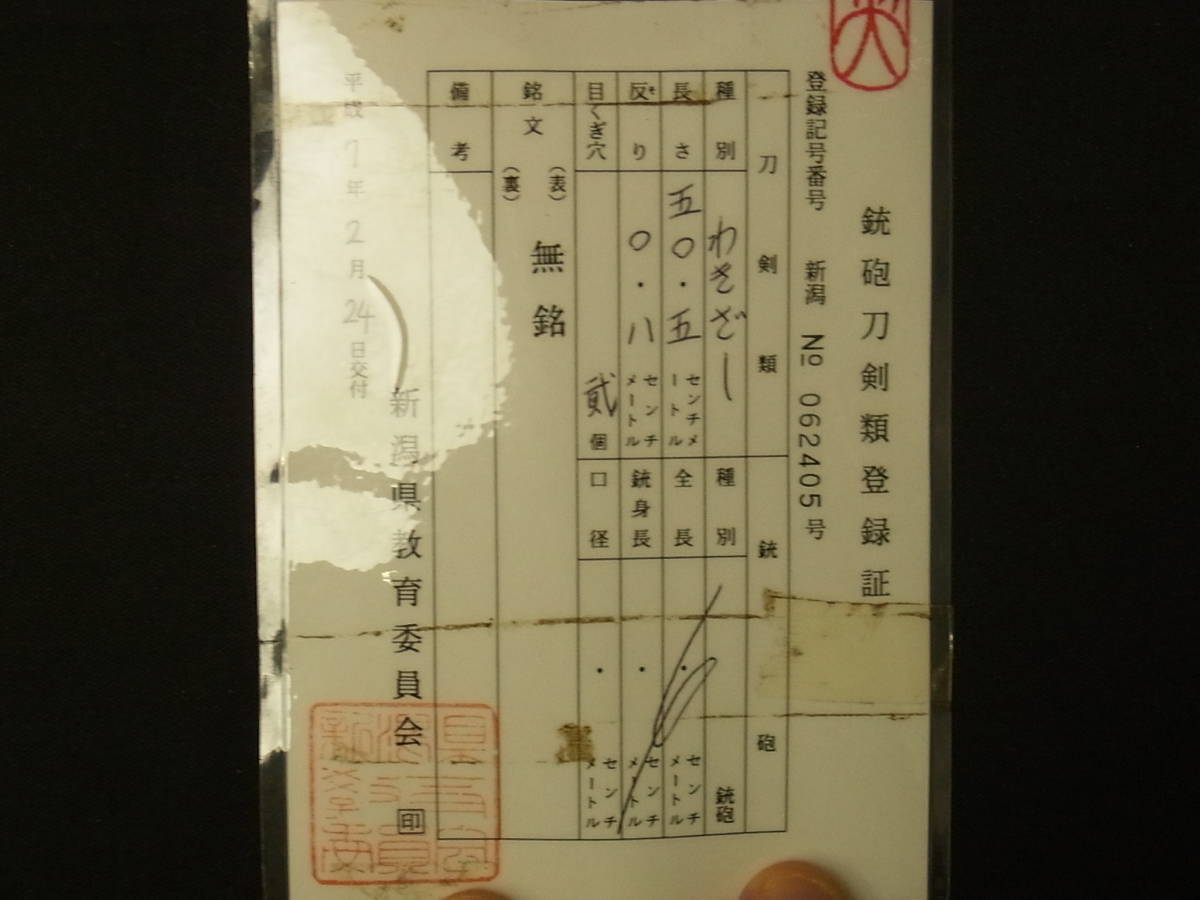 銃砲刀剣類登録証
登録記号番号 新潟 №062405号
刀剣類
種別 わきざし
長さ 五〇.五 センチメートル
反り そ 〇.八 センチメートル
目くぎ穴 貳個
銘文
(表) 無銘
(裏)
備考
銃砲
種別 銃砲
全長 . センチメートル
銃身長 . センチメートル
口径 . センチメートル
平成7年2月24日交付
新潟県教育委員会 印